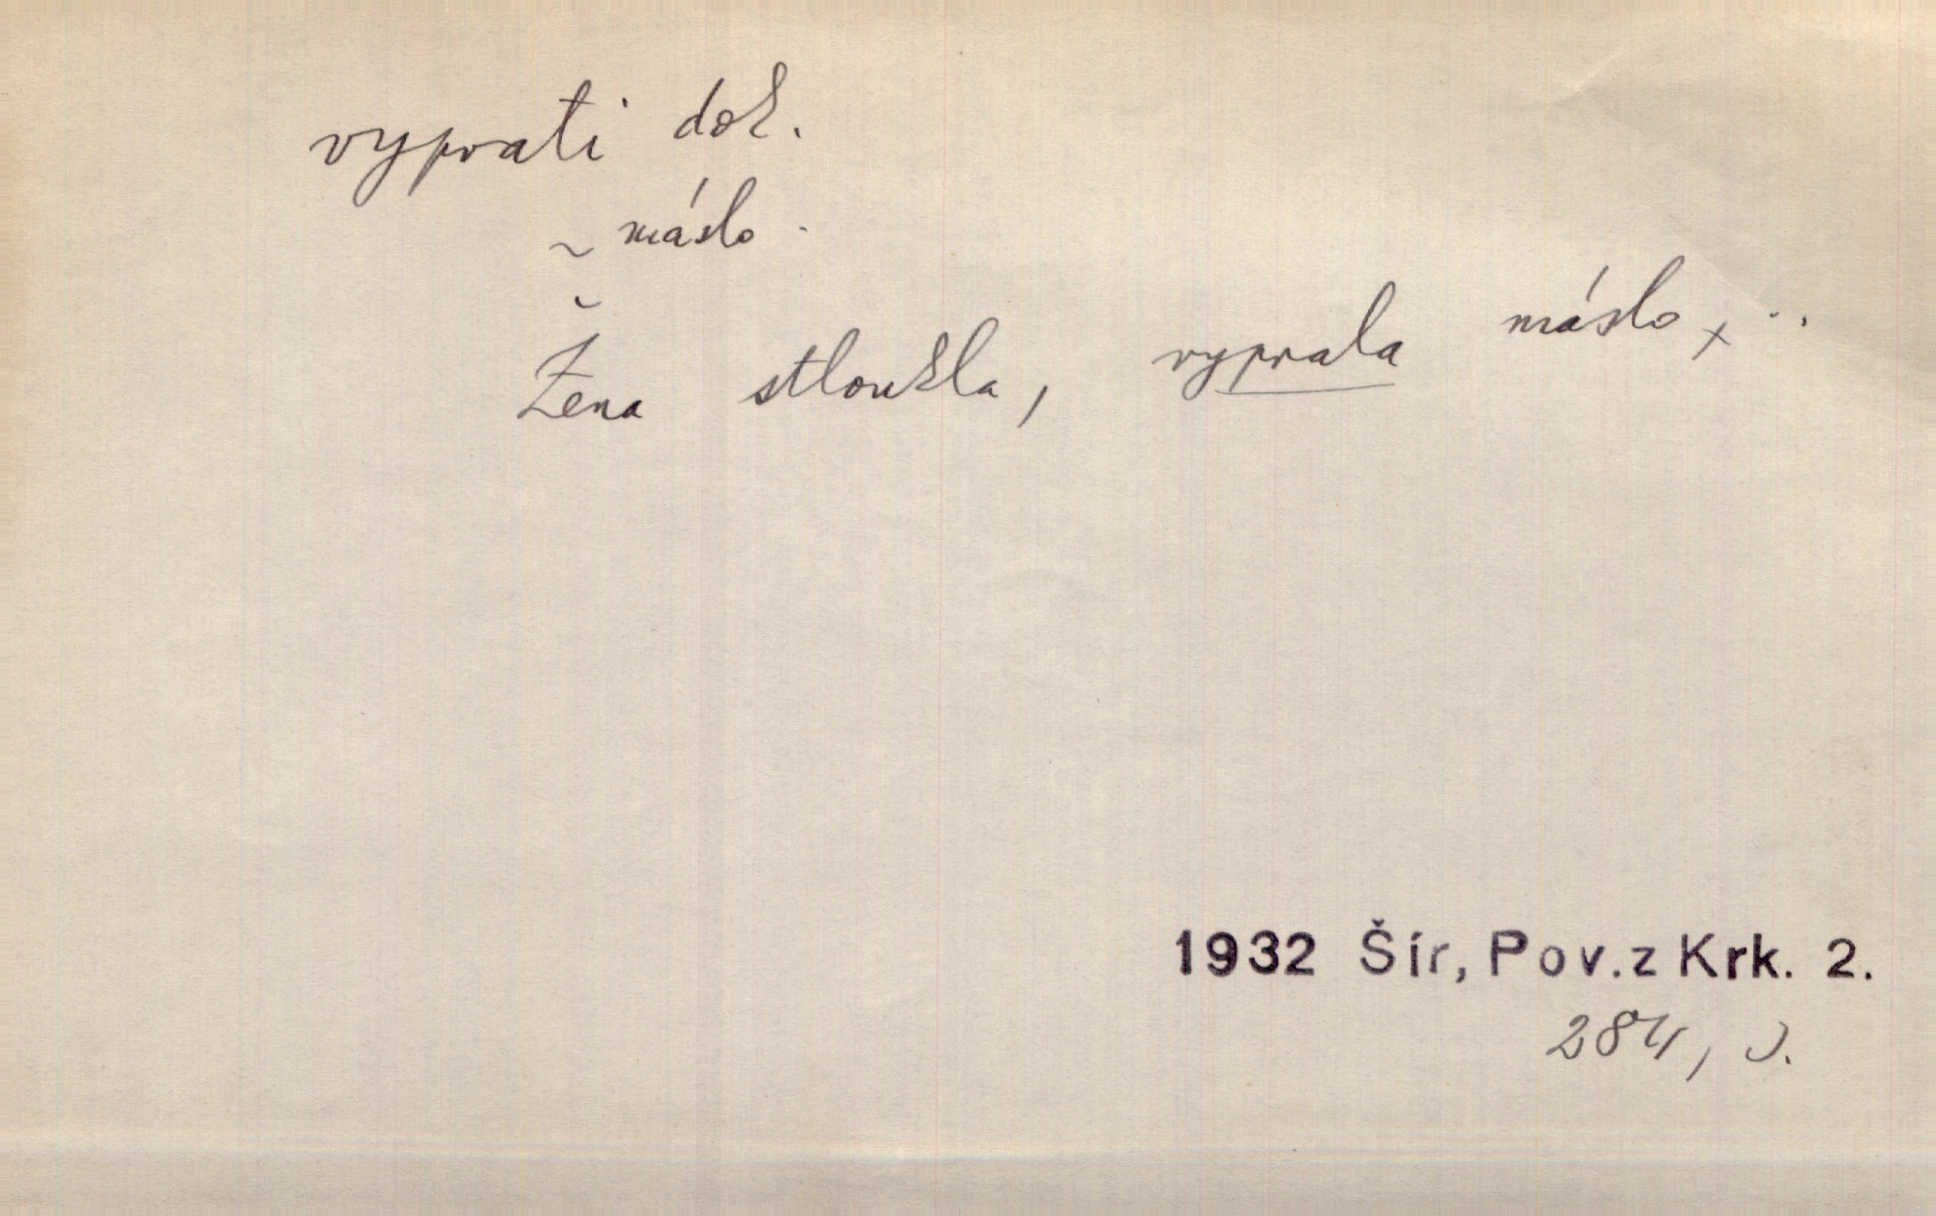 vyprati dok.
~ máslo.
Žena stloukla, vyprala máslo, ..
1932 Šír, Pov. z Krk. 2.
284,